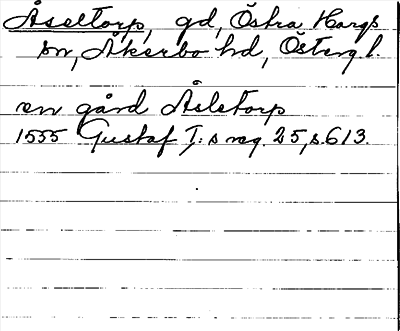 Åseltorp, gd, Östra Hargs
sn, Åkerbo hd, Östergl.
en gård Åsletorp
1555 Gustaf I:s reg. 25, s. 613.